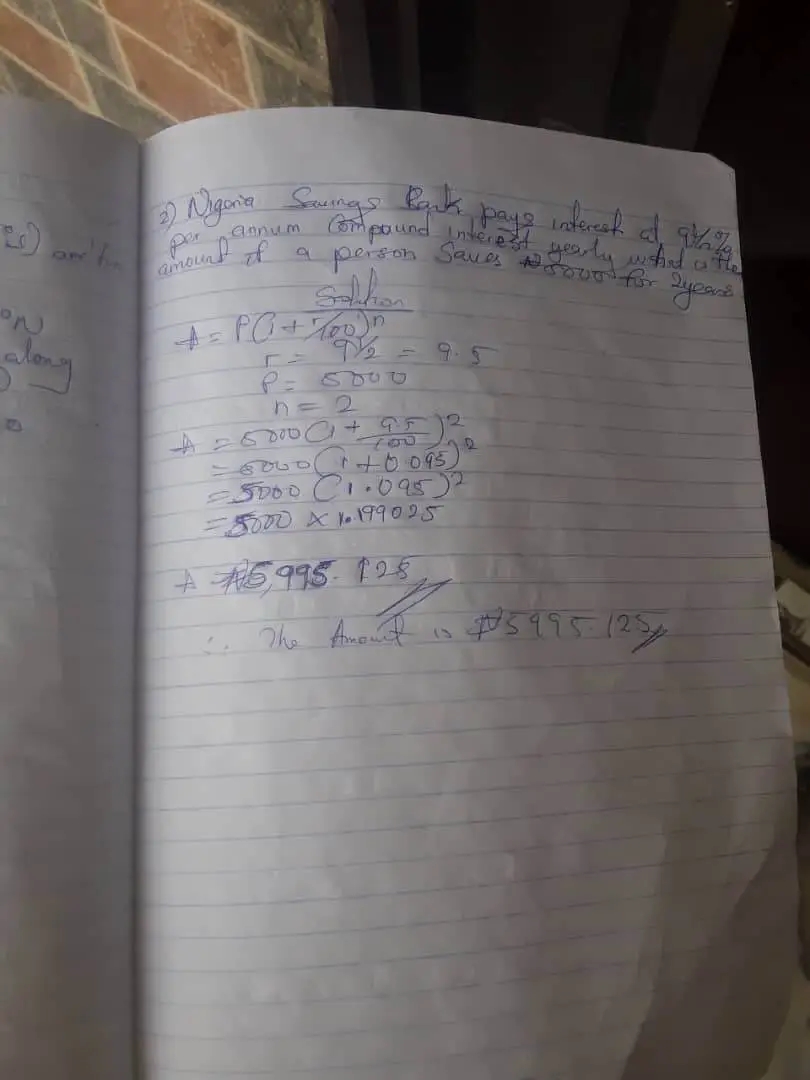 2) Nigeria Savings Bank pays interest at 9½%
per annum Compound interest yearly what is the
amount if a person Saves ₦5000 for 2years
Solution
A = P(1 + r/100)ⁿ
r = 9½ = 9.5
P = 5000
n = 2
A = 5000(1 + 9.5/100)²
= 5000(1 + 0.095)²
= 5000(1.095)²
= 5000 × 1.199025
A = ₦5,995.125
∴ The Amount is ₦5995.125
along